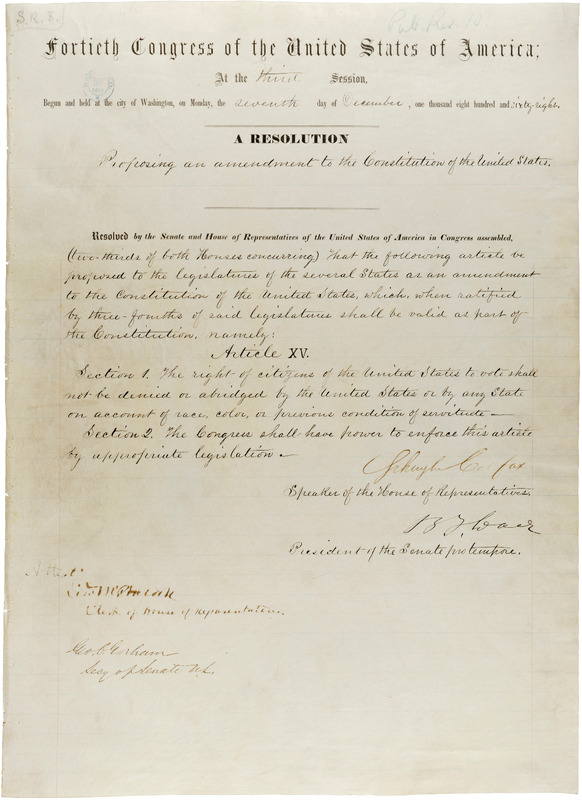 S.R. 8.
Pub. Res. 15.
Fortieth Congress of the United States of America;
At the third Session,
Begun and held at the city of Washington, on Monday, the seventh day of December, one thousand eight hundred and sixty-eight.
A RESOLUTION
Proposing an amendment to the Constitution of the United States.
Resolved by the Senate and House of Representatives of the United States of America in Congress assembled,
(two-thirds of both Houses concurring) That the following article be
proposed to the legislatures of the several States as an amendment
to the Constitution of the United States, which, when ratified
by three-fourths of said legislatures shall be valid as part of
the Constitution, namely:
Article XV.
Section 1. The right of citizens of the United States to vote shall
not be denied or abridged by the United States or by any State
on account of race, color, or previous condition of servitude —
Section 2. The Congress shall have power to enforce this article
by appropriate legislation —
Schuyler Colfax
Speaker of the House of Representatives.
B F Wade
President of the Senate protempore.
Attest:
Edwd McPherson
Clerk of House of Representatives.
Geo. C. Gorham
Secy of Senate U.S.